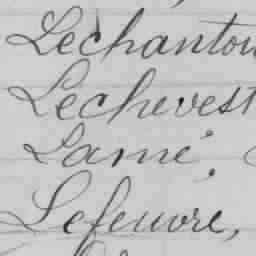 Lechantou
Lechevest
Lamé,
Lefeuvre,